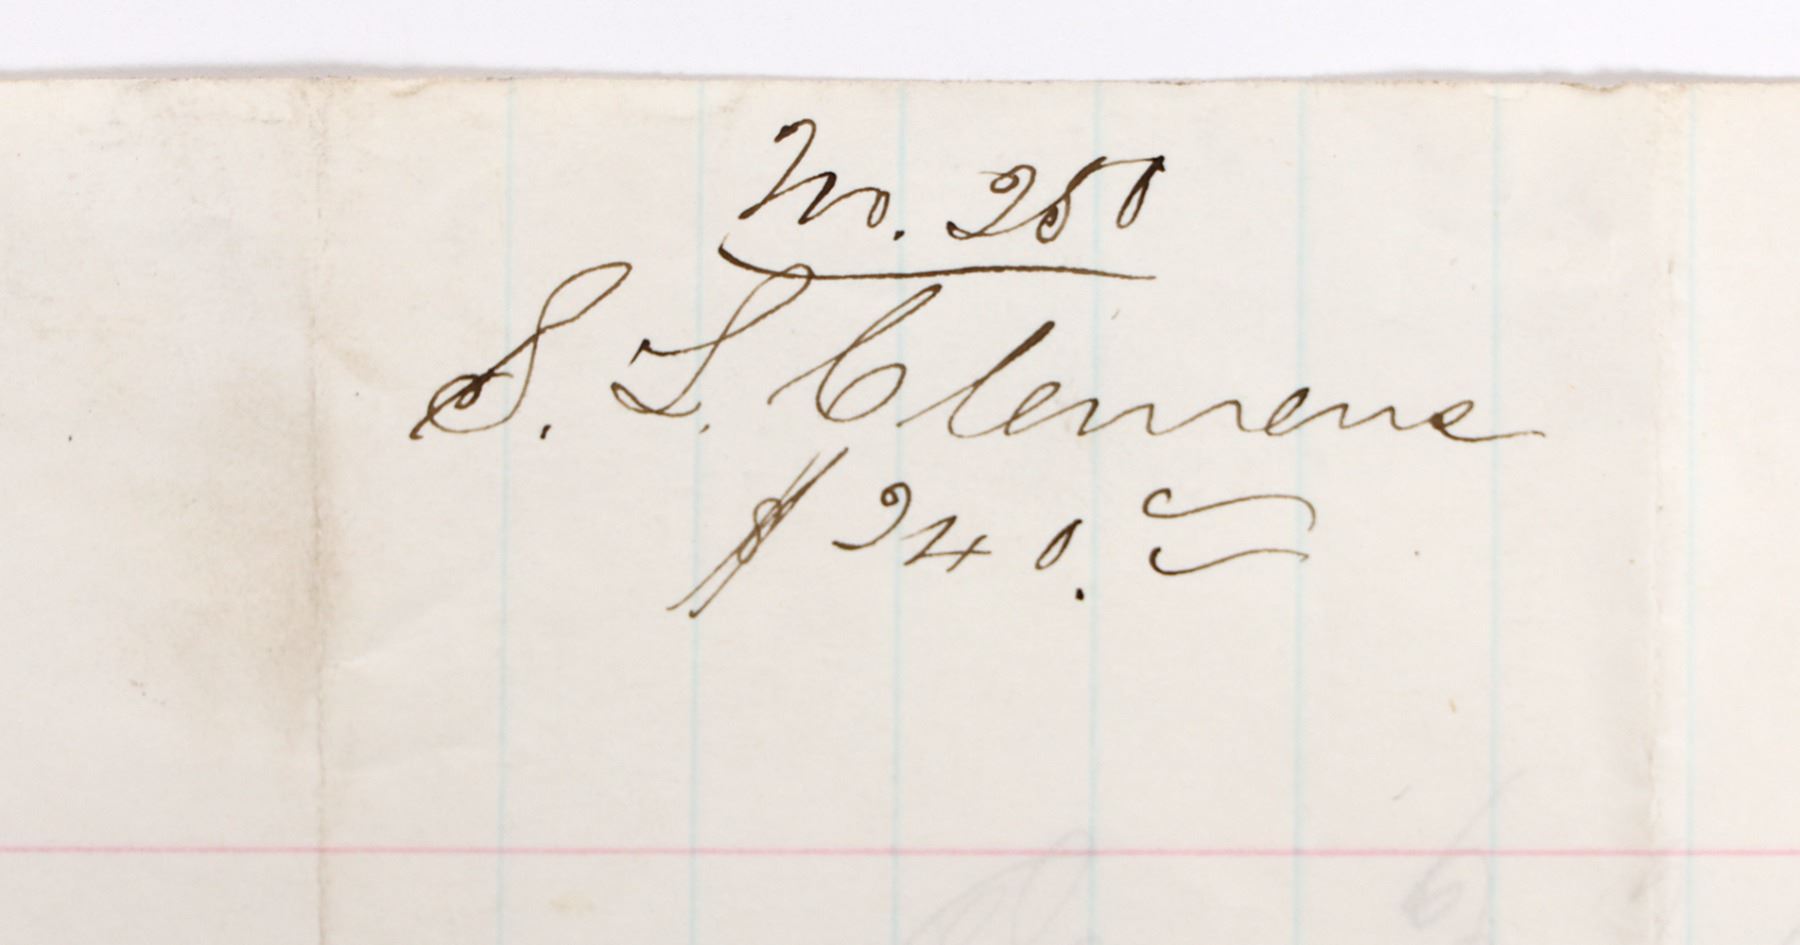 No. 250
S. L. Clemens
$240.